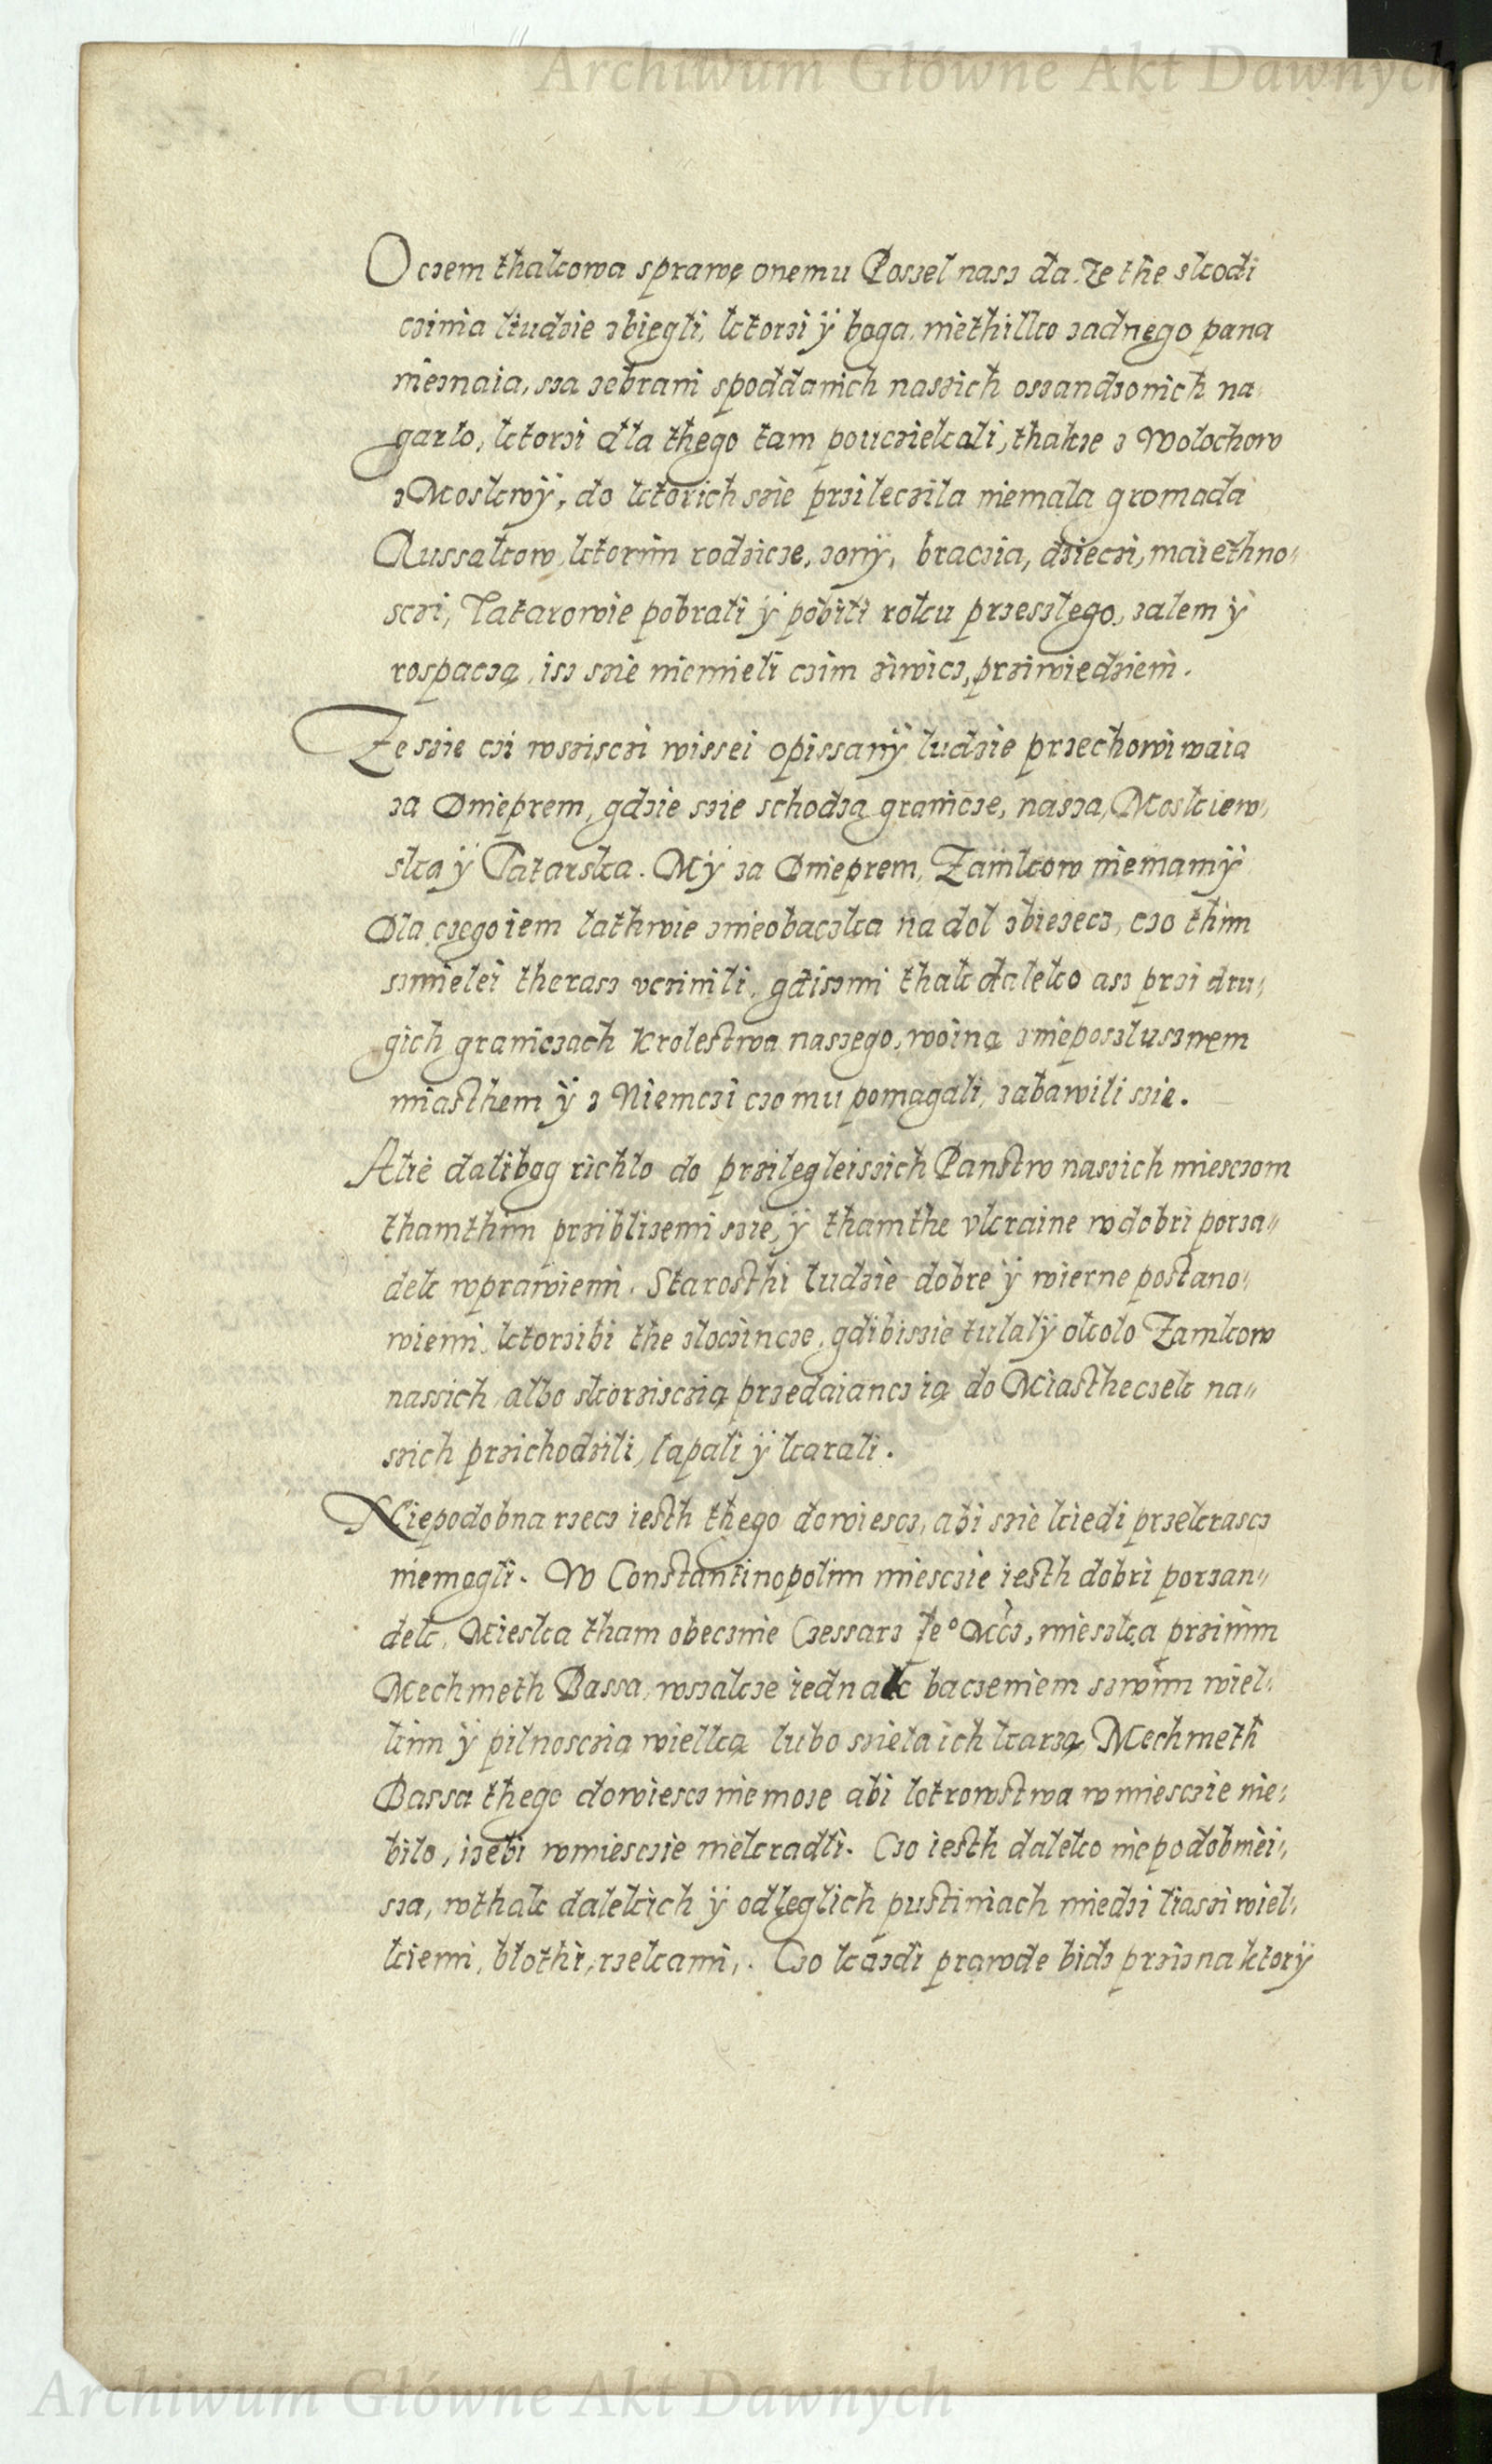 Archiwum Główne Akt Dawnych
Oczem thakowa sprawę onemu Poszel nasz da. Ze the skodi
czinia ludzie zbiegli, ktorzi ÿ boga, niethilko zadnego pana
nieznaia, sza zebrani spoddanich naszich oszandzonich na
garlo, ktorzi dla thego tam poucziekali, thakze z Wolochow
z Moskwÿ, do ktorich szie prziłeczila niemala gromada
Russakow, ktorim rodzicze, zonÿ, braczia, dzieczi, maiethno-
sczi, Tatarowie pobrali ÿ pobili roku przeszlego, zalem ÿ
rospaczą, isz szie niemieli czim ziwicz, prziwiedzieni.
Ze szie czi wsziszczi wissei opissanÿ ludzie przechowiwaia
za Dnieprem, gdzie szie schodzą granicze, nasza, Moskiew-
ska ÿ Tatarska. Mÿ za Dnieprem, Zamkow niemamÿ
Dla czego iem lathwie znieobaczka na dol zbiezecz, czo thim
szmielei therasz vczinili, gdiszmi thak daleko asz przi dru-
gich graniczach Krolestwa naszego, woiną znieposzlusznem
miasthem ÿ z Niemczi czo mu pomagali, zabawili szie.
Alie dalibog richlo do przilegleiszich Panstw naszich miesczom
thamthim przibliziemi szie, ÿ thamthe vkraine wdobri porza-
dek wprawiemi. Starosthi ludzie dobre ÿ wierne postano-
wiemi, ktorzibi the zloczincze, gdibiszie tulalÿ okolo Zamkow
naszich, albo skorzisczią przedaiancz ią do Miastheczek na-
szich przichodzili, lapali ÿ karali.
Niepodobna rzecz iesth thego dowiescz, abi szie kiedi przekrascz
niemogli. W Constantinopolim miesczie iesth dobri porzan-
dek. Mieska tham obecznie Czessarz Je° Mcz, mieszka przinim
Mechmeth Bassa, wszakze iednak baczeniem szwim wiel-
kim ÿ pilnosczia wielką lubo sziela ich karzą, Mechmeth
Bassa thego dowiescz niemoze abi lotrowstwa wmiesczie nie-
bilo, izebi wmiesczie niekradli. Czo iesth daleko niepodobniei-
sza, wthak dalekich ÿ odleglich pustiniach miedzi liaszi wiel-
kiemi, blothi, rzekami. Czo kazdi prawde bidz przizna ktorÿ
Archiwum Główne Akt Dawnych